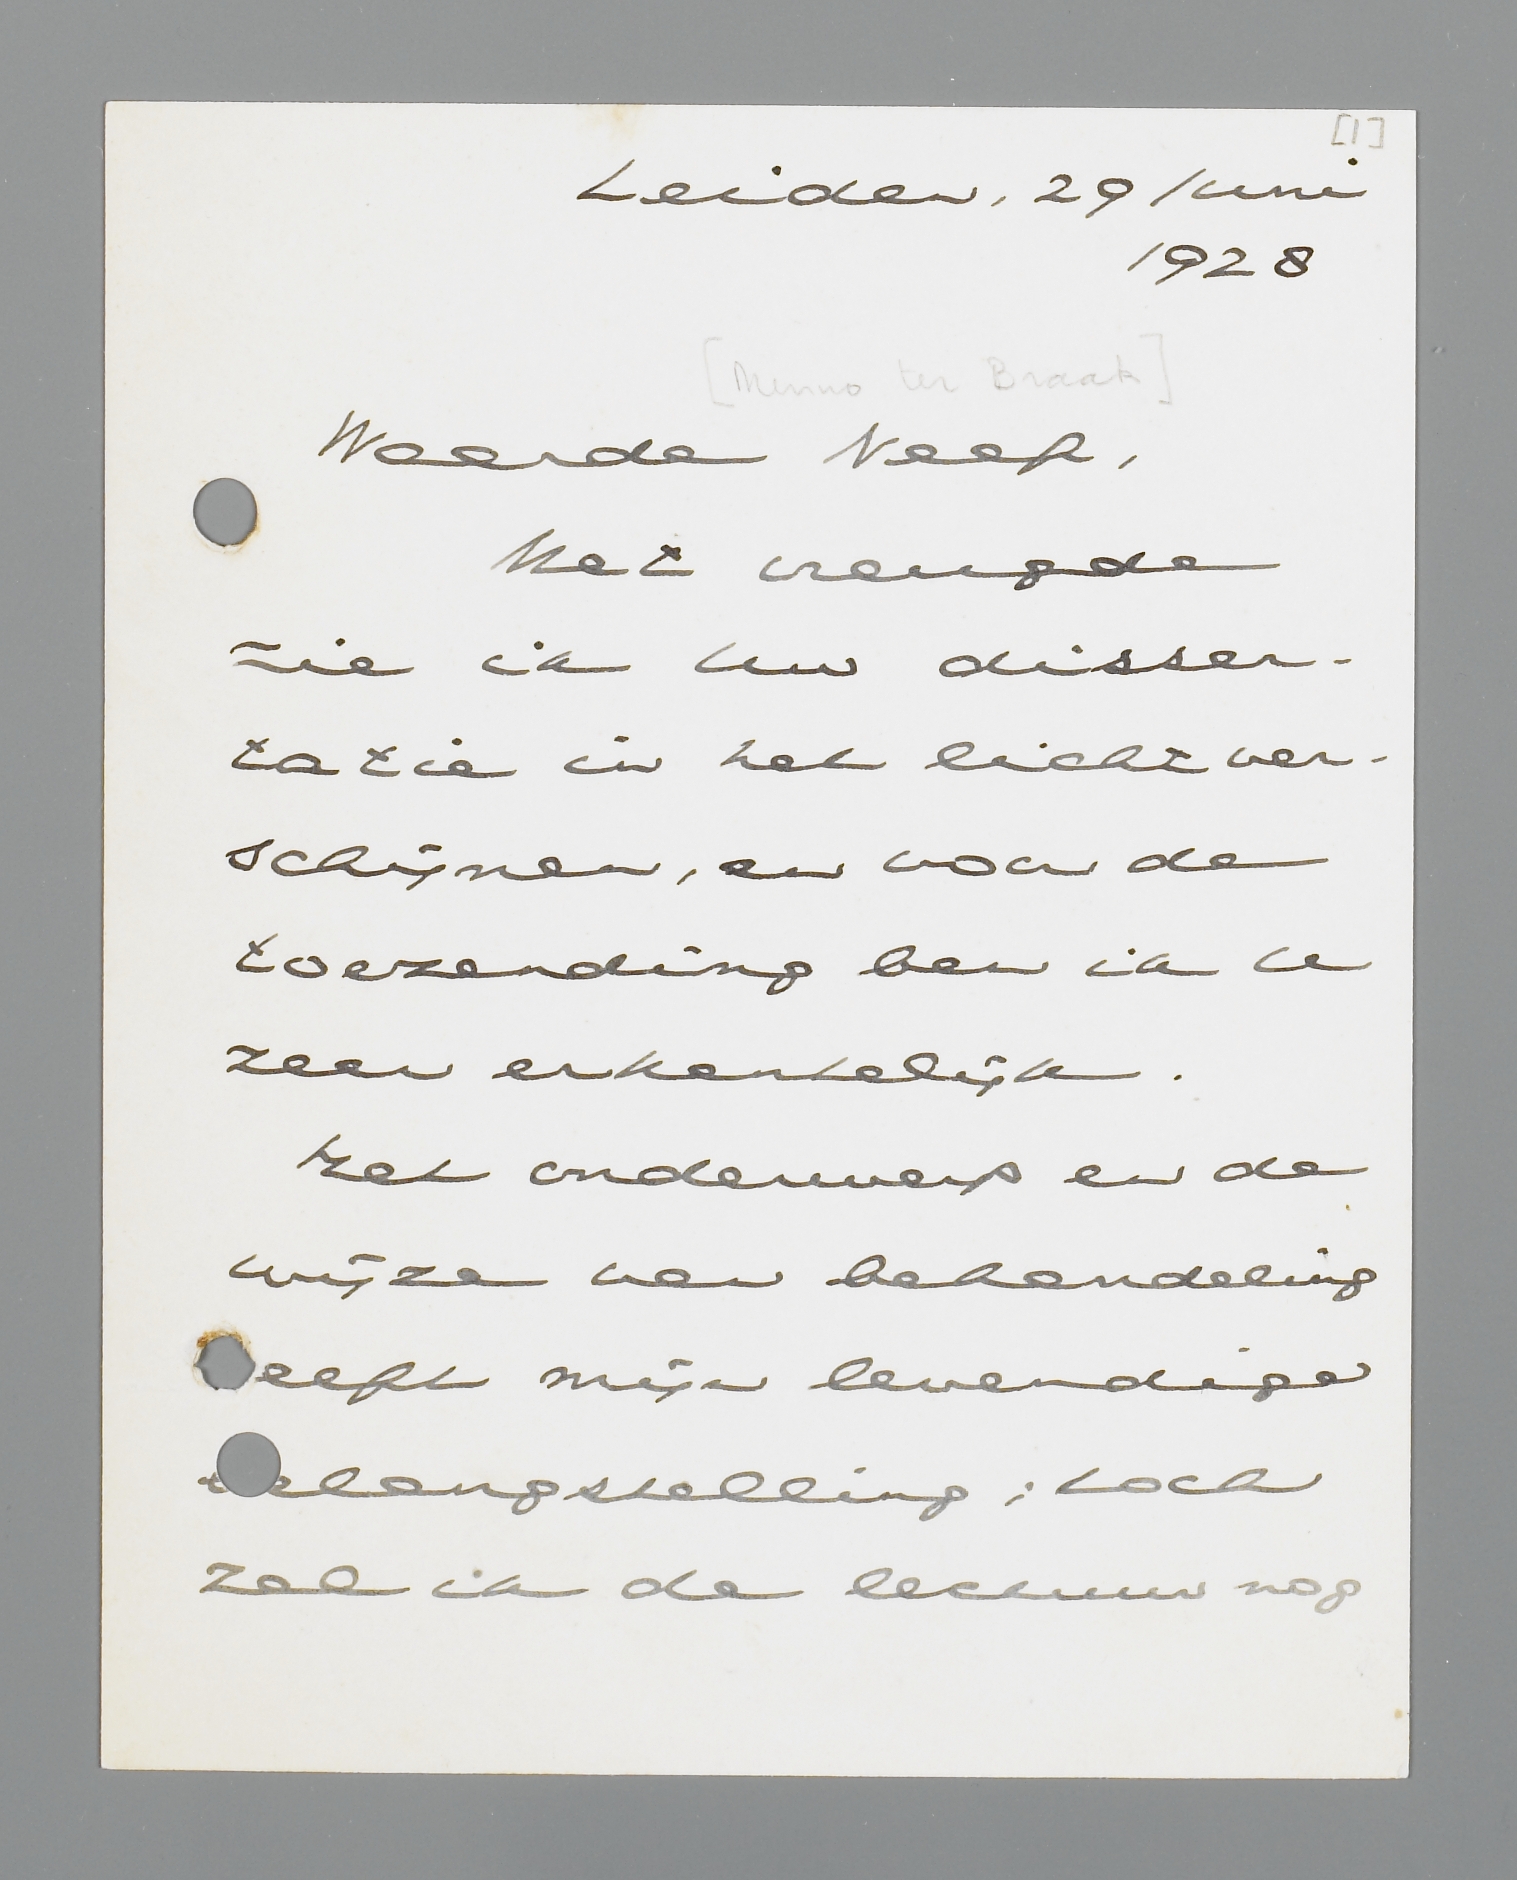 [1]
Leiden, 29 Juni
1928
[Menno ter Braak]
Waarde Neef,
Met vreugde
zie ik Uw disser-
tatie in het licht ver-
schijnen, en voor de
toezending ben ik U
zeer erkentelijk.
Het onderwerp en de
wijze van behandeling
heeft mijn levendige
belangstelling; toch
zal ik de lectuur nog